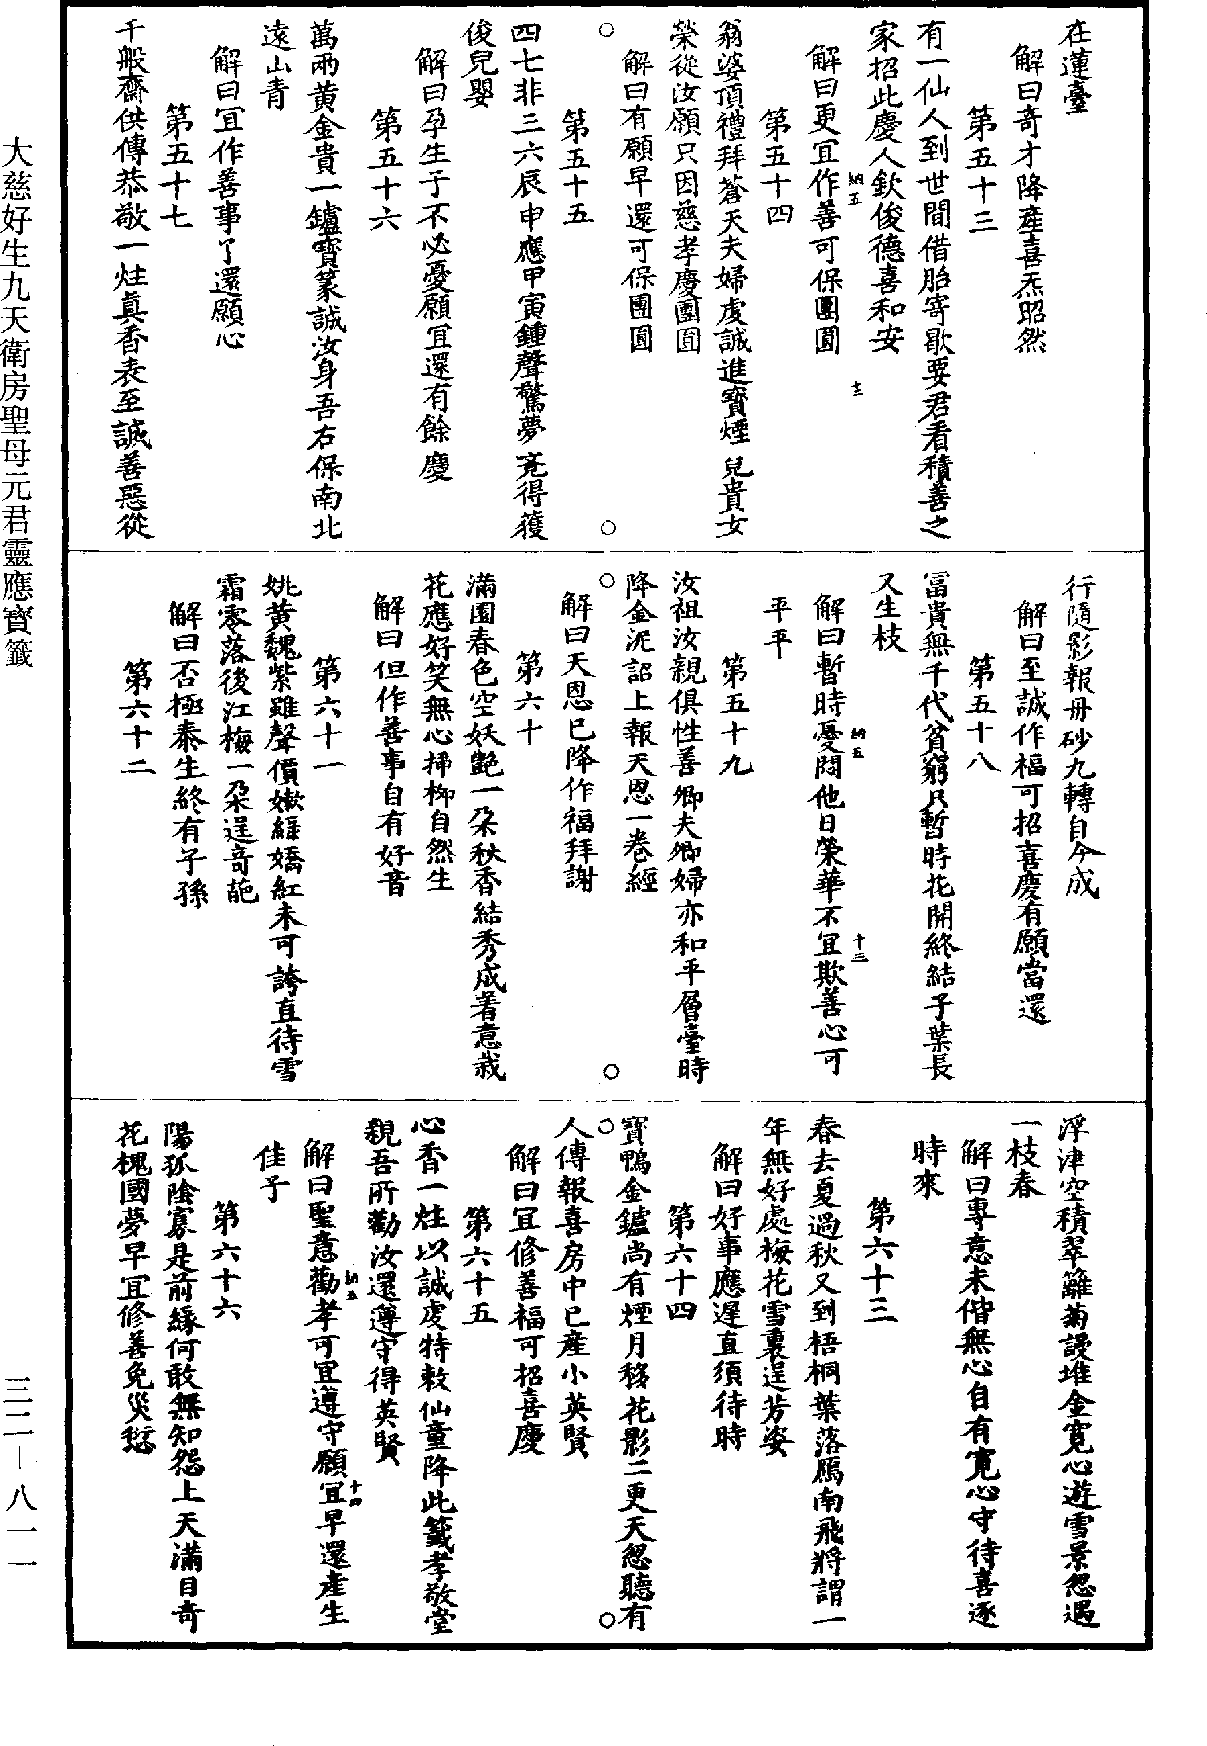 在蓮臺
解曰奇才降產喜炁昭然
第五十三
有一仙人到世間借胎寄歇要君看積善之
家招此慶人欽俊德喜和安
解曰更宜作善可保團圓
納五
十三
第五十四
翁婆頂禮拜蒼天夫婦虔誠進寶煙兒貴女
榮從汝願只因慈孝慶團圓
解曰有願早還可保團圓
第五十五
四七非三六辰申應甲寅鍾聲驚夢竟得獲
俊兒嬰
解曰孕生子不必憂願宜還有餘慶
第五十六
萬兩黃金貴一鑪寶篆誠汝身吾右保南北
遠山青
解曰宜作善事了還願心
第五十七
千般齋供傳恭敬一炷真香表至誠善惡從
行隨影報丹砂九轉自今成
解曰至誠作福可招喜慶有願當還
第五十八
富貴無千代貧窮只暫時花開終結子葉長
又生枝
解曰暫時憂悶他日榮華不宜欺善心可
納五
十三
平平
第五十九
汝祖汝親俱性善卿夫卿婦亦和平層臺時
降金泥詔上報天恩一卷經
解曰天恩已降作福拜謝
第六十
滿園春色空妖艷一朵秋香結秀成著意栽
花應好笑無心掃柳自然生
解曰但作善事自有好音
第六十一
姚黃魏紫雖聲價嫩綠嬌紅未可誇直待雪
霜零落後江梅一朵逞奇葩
解曰否極泰生終有子孫
第六十二
浮津空積翠籬菊謾堆金寬心遊雪景忽遇
一枝春
解曰專意未偕無心自有寬心守待喜逐
時來
第六十三
春去夏過秋又到梧桐葉落鴈南飛將謂一
年無好處梅花雪裏逞芳姿
解曰好事應遲直須待時
第六十四
寶鴨金鑪尚有煙月移花影二更天忽聽有
人傳報喜房中已產小英賢
解曰宜修善福可招喜慶
第六十五
心香一炷以誠虔特敕仙童降此籤孝敬堂
親吾所勸汝還遵守得英賢
解曰聖意勸孝可宜遵守願宜早還產生
納五
十四
佳子
第六十六
陽孤陰寡是前緣何敢無知怨上天滿目奇
花槐國夢早宜修善免災愆
大慈好生九天衛房聖母元君靈應寶籤
三二—八一一